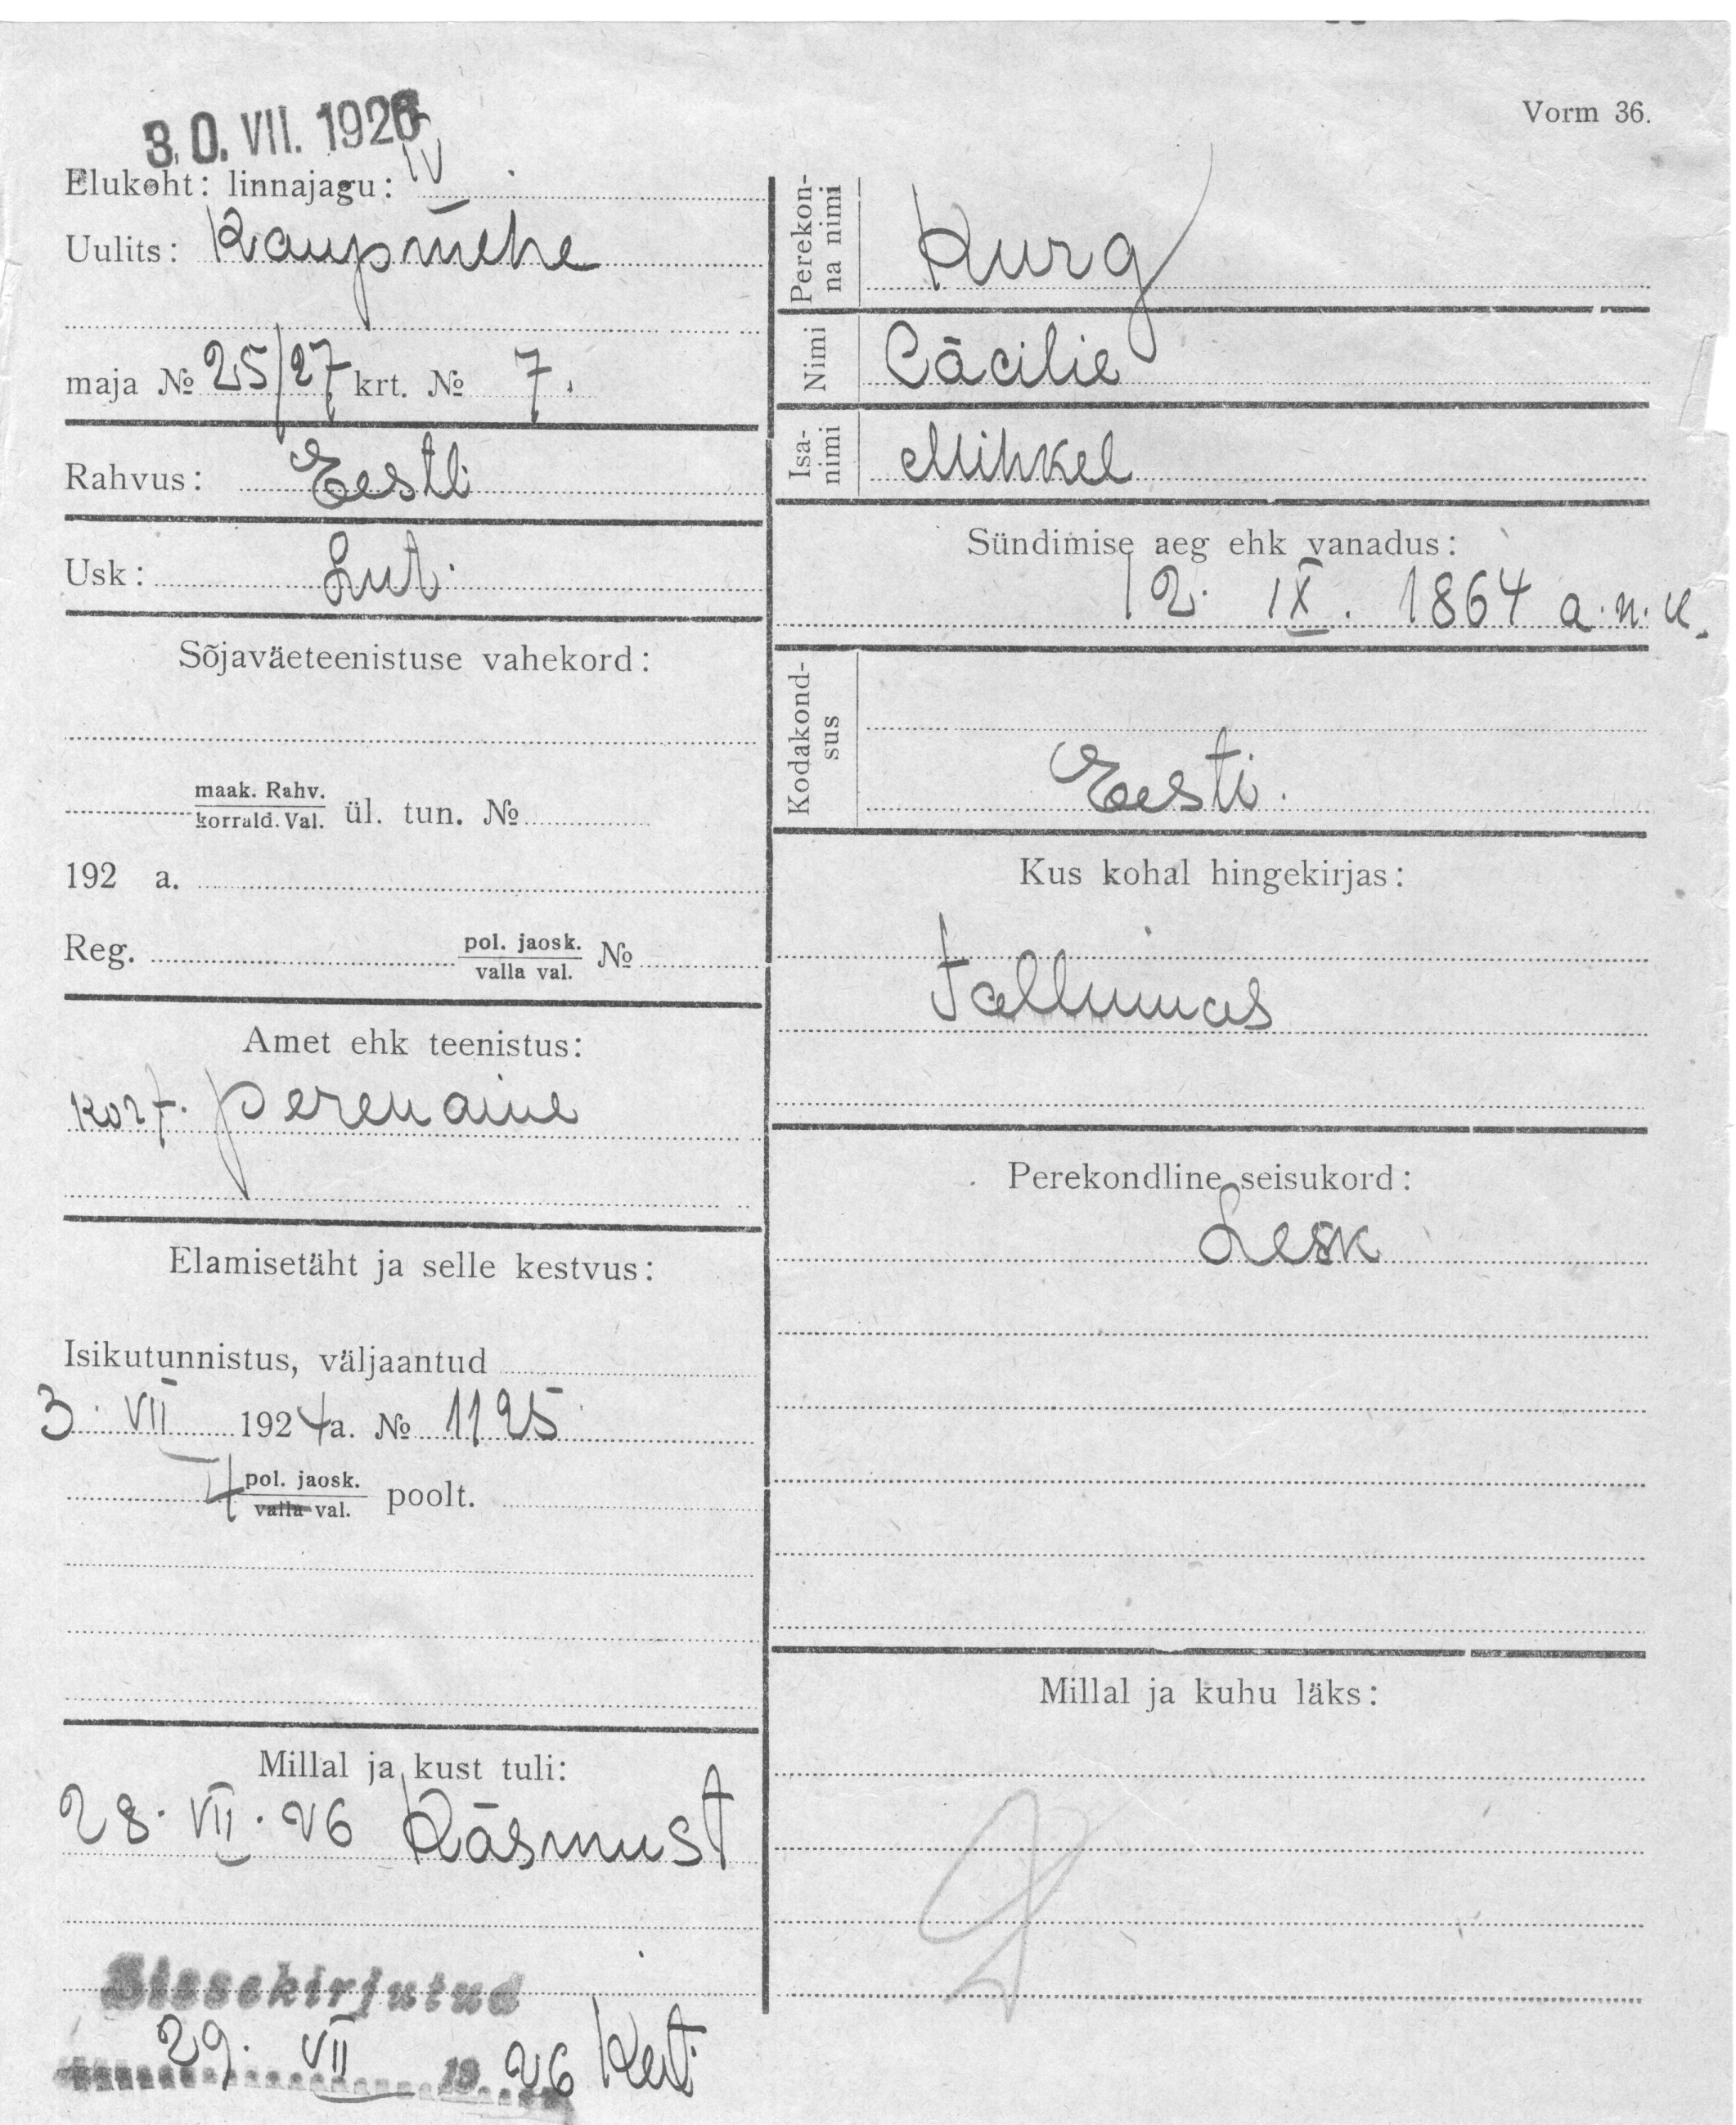 30. VII. 1926
Vorm 36.
Elukoht: linnajagu: IV
Uulits: Kaupmehe
maja № 25/27 krt. № 7.
Rahvus: Eesti
Usk: Lut.
Sõjaväeteenistuse vahekord:
maak. Rahv.
korrald. Val. ül. tun. №
192 a.
Reg. pol. jaosk. №
valla val.
Amet ehk teenistus:
kort. perenaine
Elamisetäht ja selle kestvus:
Isikutunnistus, väljaantud
3. VII 1924 a. № 1125
4 pol. jaosk. poolt.
valla val.
Millal ja kust tuli:
28. VII. 26 Käsmust
Sissekirjutud
29. VII 19 26
Perekon-
na nimi Kurg
Nimi Cäcilie
Isa-
nimi Mihkel
Sündimise aeg ehk vanadus:
12. IX. 1864 a. n. k.
Kodakond-
sus Eesti.
Kus kohal hingekirjas:
Tallinnas
Perekondline seisukord:
Lesk
Millal ja kuhu läks: